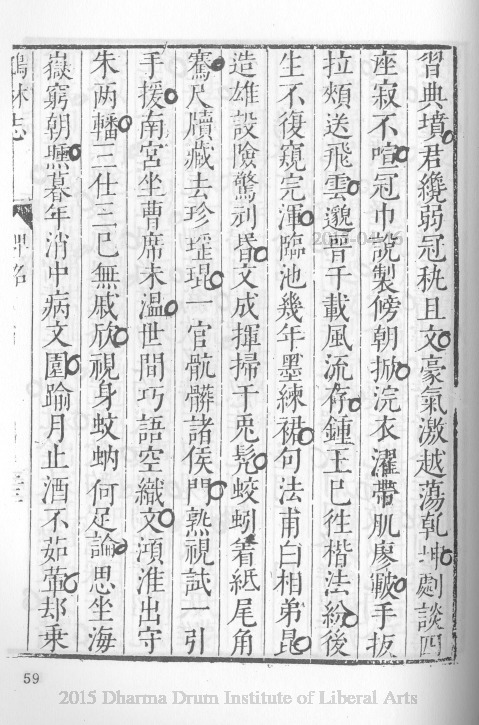 習典墳君纔弱冠秇且文豪氣激越蕩乾坤劇談四
座寂不喧冠巾說製傍朝掀浣衣濯帶肌廖皸手扳
拉頰送飛雲邈晉千載風流存鍾王已徃楷法紛後
生不復窺完渾臨池幾年墨練裙句法甫白相弟昆
造雄設險驚刓昬文成揮掃千兎髠蛟蚓着紙尾角
騫尺牘藏去珍璀琨一官骯髒諸侯門熟視試一引
手援南宮坐曹席未溫世間巧語空織文澒淮出守
朱两轓三仕三巳無戚欣視身蚊蚋何足論思坐海
嶽窮朝曛暮年消中病文園踰月止酒不茹葷却乗
鶴林志
碑銘
五十三
59
2015 Dharma Drum Institute of Liberal Arts